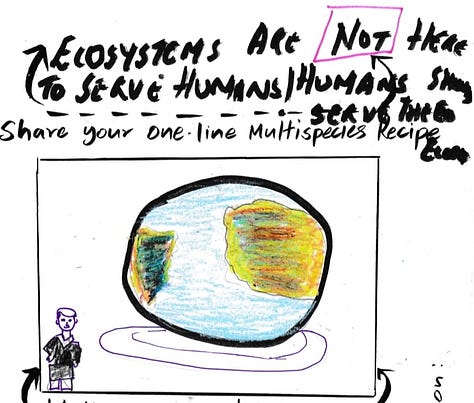 ECOSYSTEMS ARE NOT HERE
TO SERVE HUMANS/HUMANS
SERVE THE
Share your one-line Multispecies Recipe